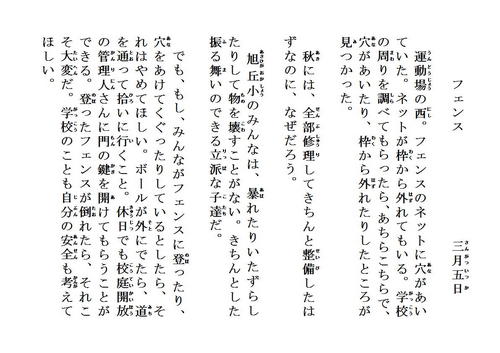 フェンス
三月五日
運動場の西。フェンスのネットに穴があい
ていた。ネットが枠から外れてもいる。学校
の周りを調べてもらったら、あちらこちらで、
穴があいたり、枠から外れたりしたところが
見つかった。
秋には、全部修理してきちんと整備したは
ずなのに、なぜだろう。
旭丘小のみんなは、暴れたりいたずらし
たりして物を壊すことがない。きちんとした
振る舞いのできる立派な子達だ。
でも、もし、みんながフェンスに登ったり、
穴をあけてくぐったりしているとしたら、そ
れはやめてほしい。ボールが外にでたら、道
を通って拾いに行くこと。休日でも校庭開放
の管理人さんに門の鍵を開けてもらうことが
できる。登ったフェンスが倒れたら、それこ
そ大変だ。学校のことも自分の安全も考えて
ほしい。